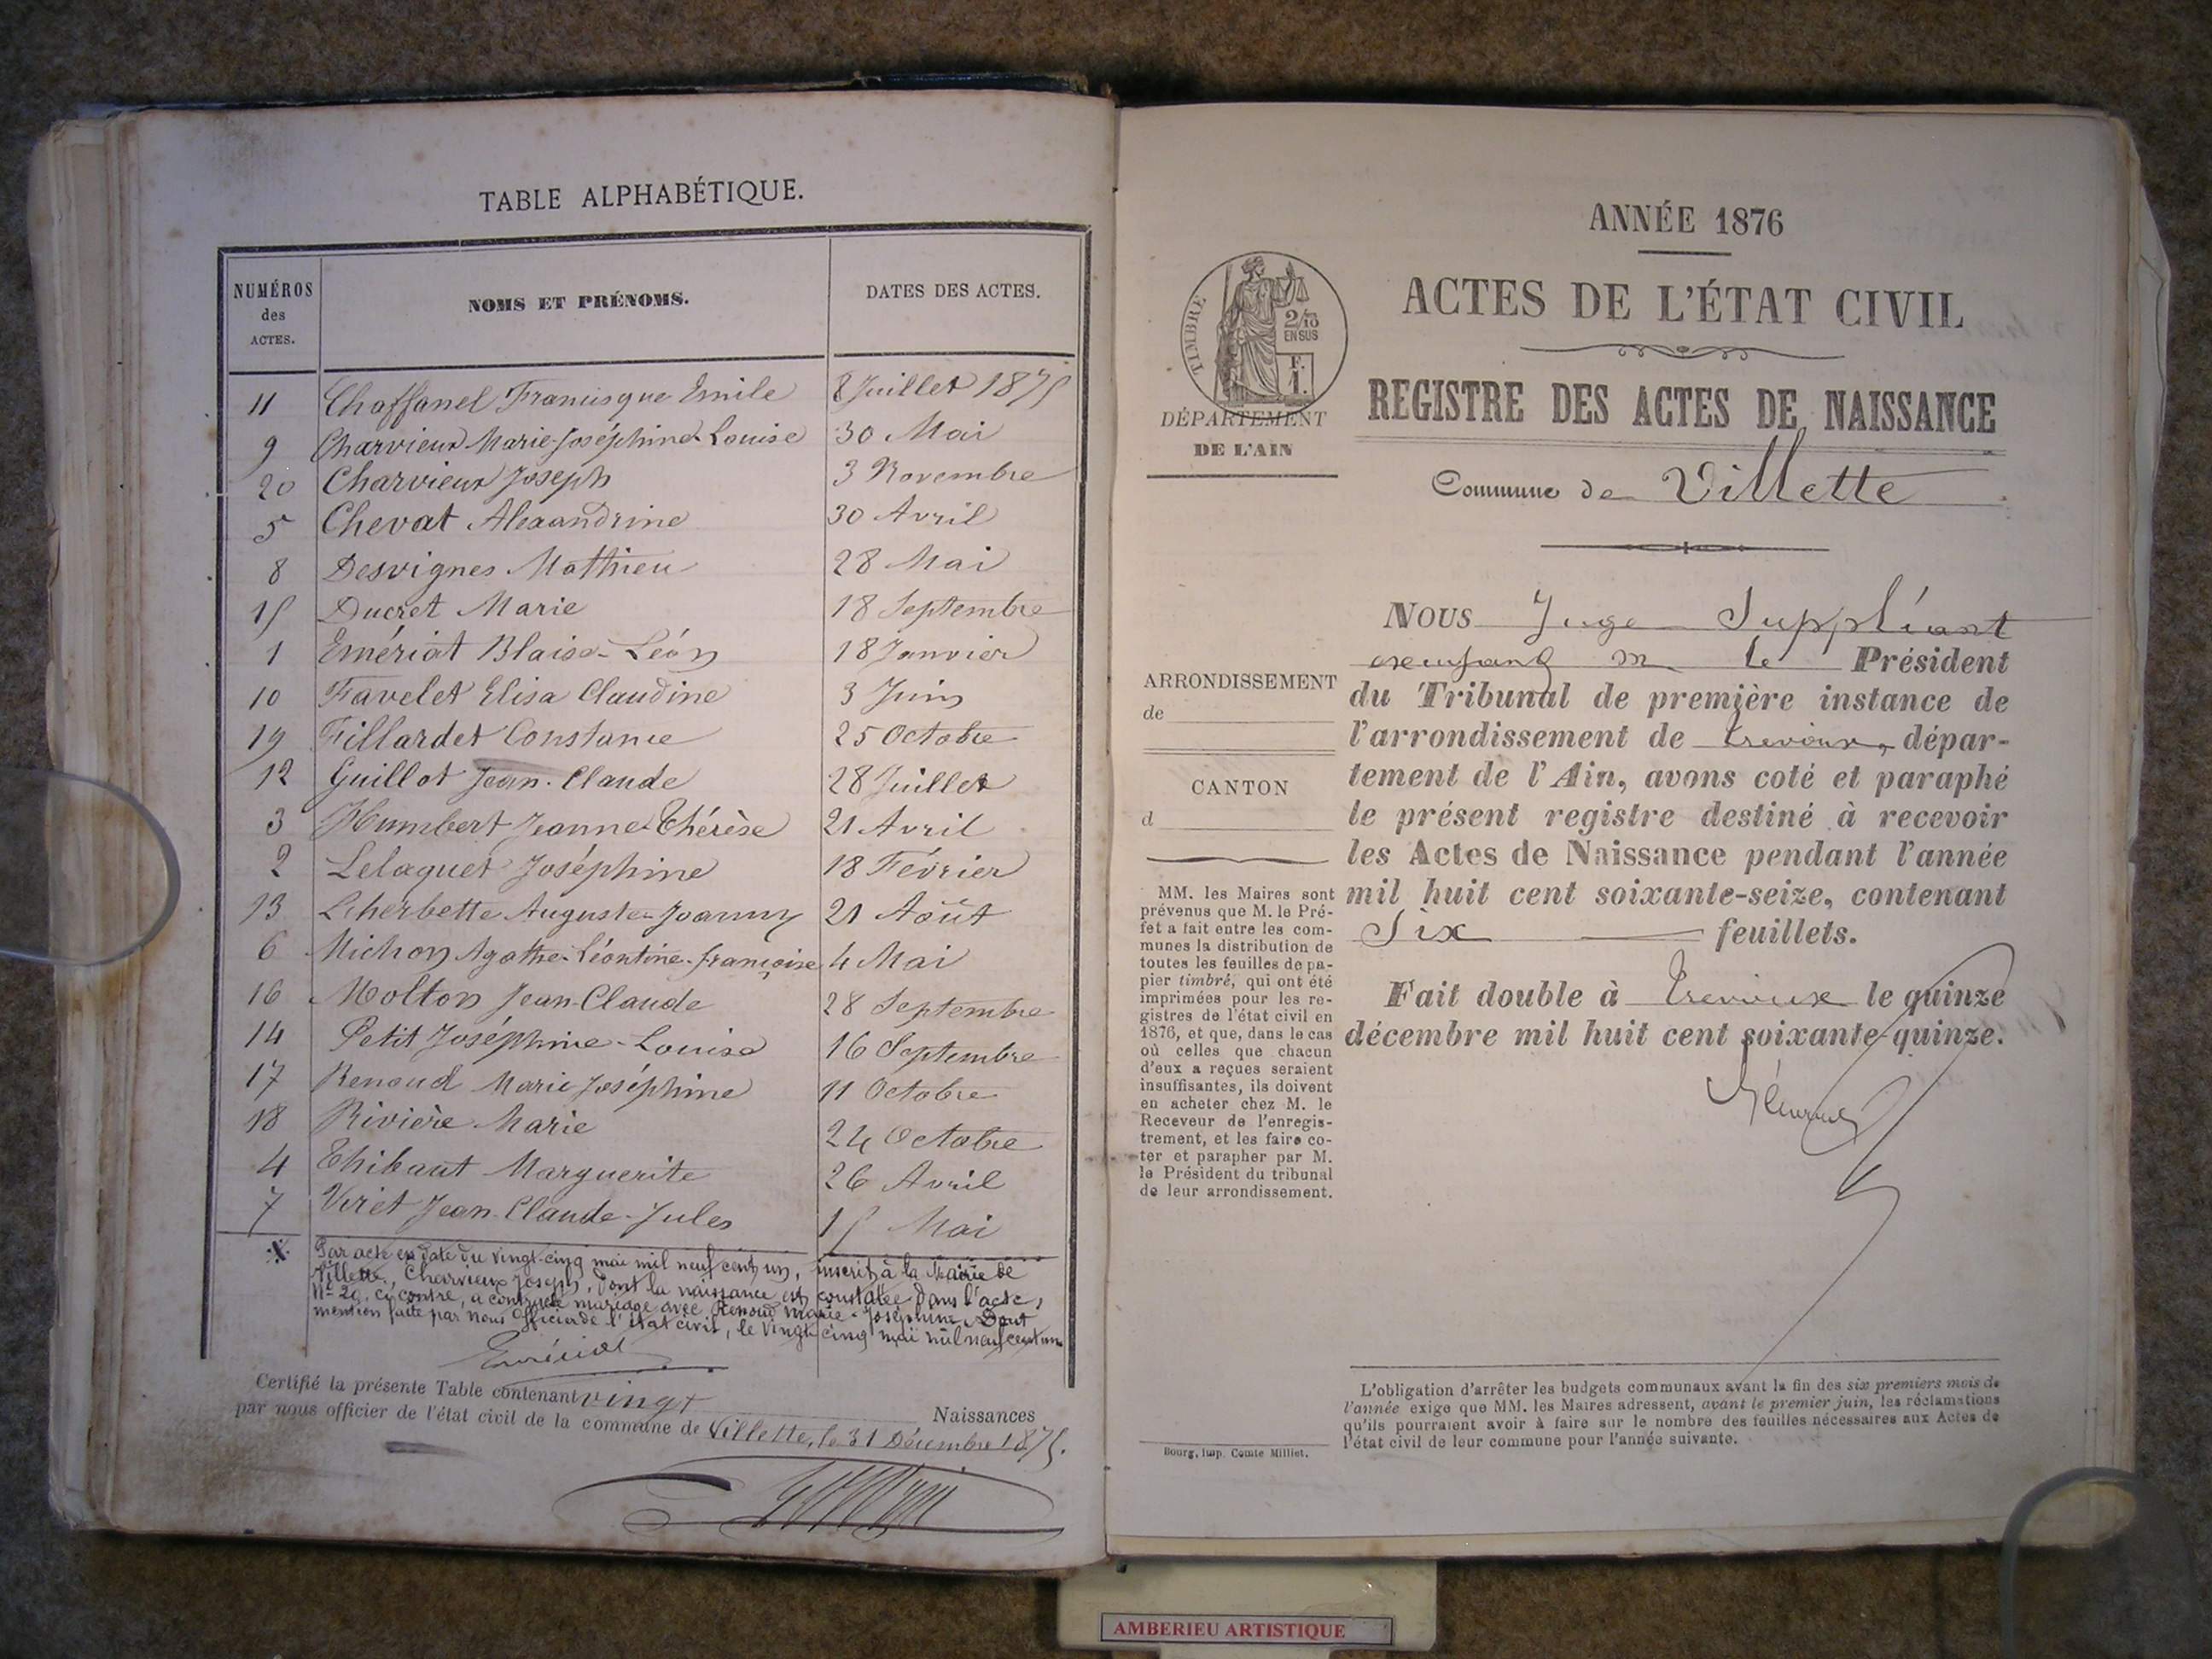 TABLE ALPHABÉTIQUE.
NUMÉROS des ACTES. NOMS ET PRÉNOMS. DATES DES ACTES.
11 Chaffanel Francisque Emile 8 Juillet 1875
9 Charvieux Marie-Joséphine-Louise 30 Mai
20 Charvieux Joseph 3 Novembre
5 Chevat Alexandrine 30 Avril
8 Desvignes Mathieu 28 Mai
15 Ducret Marie 18 Septembre
1 Emériat Blaise-Léon 18 Janvier
10 Favelet Elisa Claudine 3 Juin
19 Fillardet Constance 25 Octobre
12 Guillot Jean-Claude 28 Juillet
3 Humbert Jeanne-Thérèse 21 Avril
2 Lelaquet Joséphine 18 Février
13 Lcherbette Auguste-Joanny 21 Août
6 Michon Agathe-Léontine-françoise 4 Mai
16 Molton Jean-Claude 28 Septembre
14 Petit Joséphine-Louise 16 Septembre
17 Renoud Marie Joséphine 11 Octobre
18 Rivière Marie 24 Octobre
4 Thibaut Marguerite 26 Avril
7 Viret Jean-Claude-Jules 15 Mai
X Par acte en date du vingt-cinq mai mil neuf cent un, inscrit à la Mairie de
Villette, Charvieux Joseph, dont la naissance est constatée dans l'acte,
N° 20, ci contre, a contracté mariage avec Renoud Marie-Joséphine, Dont
mention faite par nous Officier de l'état civil, le vingt cinq mai mil neuf cent un
Emériat
Certifié la présente Table contenant vingt Naissances
par nous officier de l'état civil de la commune de Villette, le 31 Décembre 1875.
ANNÉE 1876
ACTES DE L'ÉTAT CIVIL
REGISTRE DES ACTES DE NAISSANCE
TIMBRE
2/10
EN SUS
F.
1.
DÉPARTEMENT
DE L'AIN
Commune de Villette
ARRONDISSEMENT
de
CANTON
d
MM. les Maires sont
prévenus que M. le Pré-
fet a fait entre les com-
munes la distribution de
toutes les feuilles de pa-
pier timbré, qui ont été
imprimées pour les re-
gistres de l'état civil en
1876, et que, dans le cas
où celles que chacun
d'eux a reçues seraient
insuffisantes, ils doivent
en acheter chez M. le
Receveur de l'enregis-
trement, et les faire co-
ter et parapher par M.
le Président du tribunal
de leur arrondissement.
NOUS Juge Suppléant
le Président
du Tribunal de première instance de
l'arrondissement de Trevoux, dépar-
tement de l'Ain, avons coté et paraphé
le présent registre destiné à recevoir
les Actes de Naissance pendant l'année
mil huit cent soixante-seize, contenant
Six feuillets.
Fait double à Trevoux le quinze
décembre mil huit cent soixante-quinze.
L'obligation d'arrêter les budgets communaux avant la fin des six premiers mois de
l'année exige que MM. les Maires adressent, avant le premier juin, les réclamations
qu'ils pourraient avoir à faire sur le nombre des feuilles nécessaires aux Actes de
l'état civil de leur commune pour l'année suivante.
Bourg, imp. Comte Milliet.
AMBERIEU ARTISTIQUE